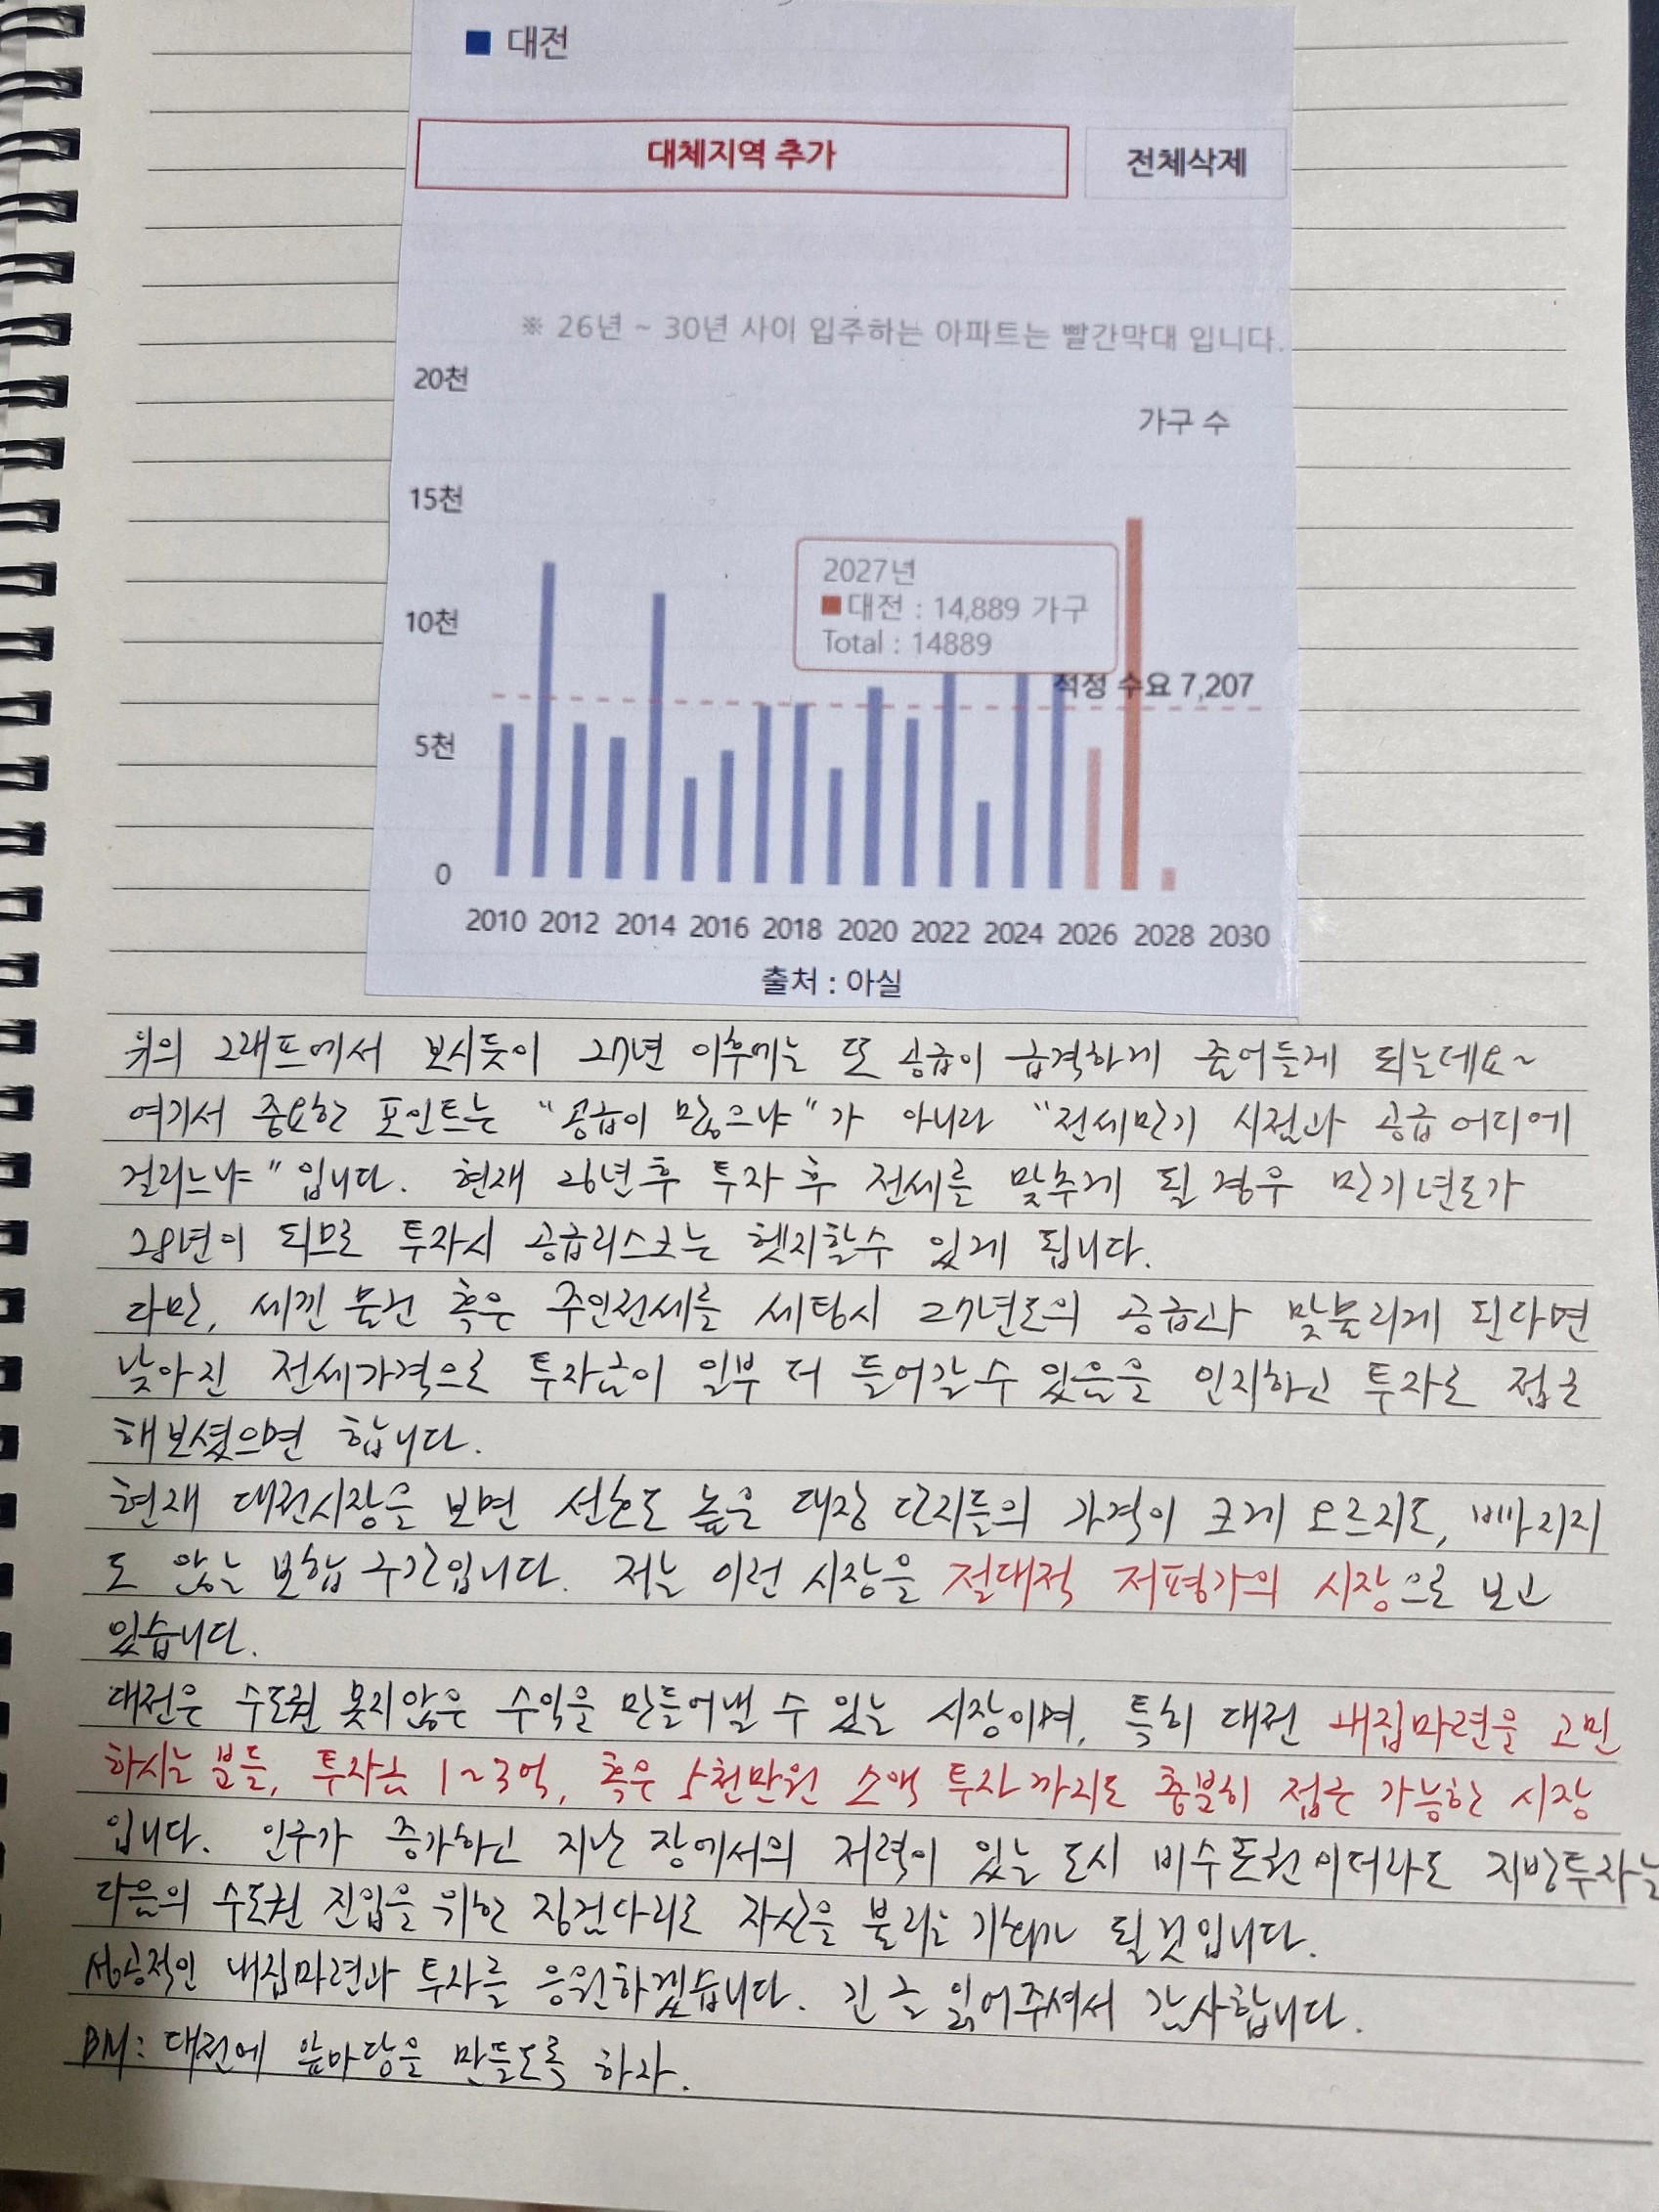 대전
대체지역 추가 전체삭제
※ 26년 ~ 30년 사이 입주하는 아파트는 빨간막대 입니다.
20천
가구 수
15천
2027년
대전 : 14,889 가구
10천
Total : 14889
적정 수요 7,207
5천
0
2010 2012 2014 2016 2018 2020 2022 2024 2026 2028 2030
출처 : 아실
위의 그래프에서 보시듯이 27년 이후에는 또 공급이 급격하게 줄어들게 되는데요~
여기서 중요한 포인트는 "공급이 많으냐"가 아니라 "전세만기 시점과 공급 어디에
걸리느냐"입니다. 현재 26년 후 투자 후 전세를 맞추게 될 경우 만기년도가
28년이 되므로 투자시 공급리스크는 헷지할수 있게 됩니다.
다만, 세낀 물건 혹은 주인전세를 세팅시 27년도의 공급과 맞물리게 된다면
낮아진 전세가격으로 투자금이 일부 더 들어갈 수 있음을 인지하고 투자로 접근
해보셨으면 합니다.
현재 대전시장을 보면 선호도 높은 대장 단지들의 가격이 크게 오르지도, 빠지지
도 않는 보합 구간입니다. 저는 이런 시장을 절대적 저평가의 시장으로 보고
있습니다.
대전은 수도권 못지않은 수익을 만들어낼 수 있는 시장이며, 특히 대전 내집마련을 고민
하시는 분들, 투자금 1~3억, 혹은 5천만원 소액 투자까지도 충분히 접근 가능한 시장
입니다. 인구가 증가하고 지난 장에서의 저력이 있는 도시 비수도권이더라도 지방투자는
다음의 수도권 진입을 위한 징검다리로 자산을 불리는 기회가 될것입니다.
성공적인 내집마련과 투자를 응원하겠습니다. 긴 글 읽어주셔서 감사합니다.
BM: 대전에 앞마당을 만들도록 하자.